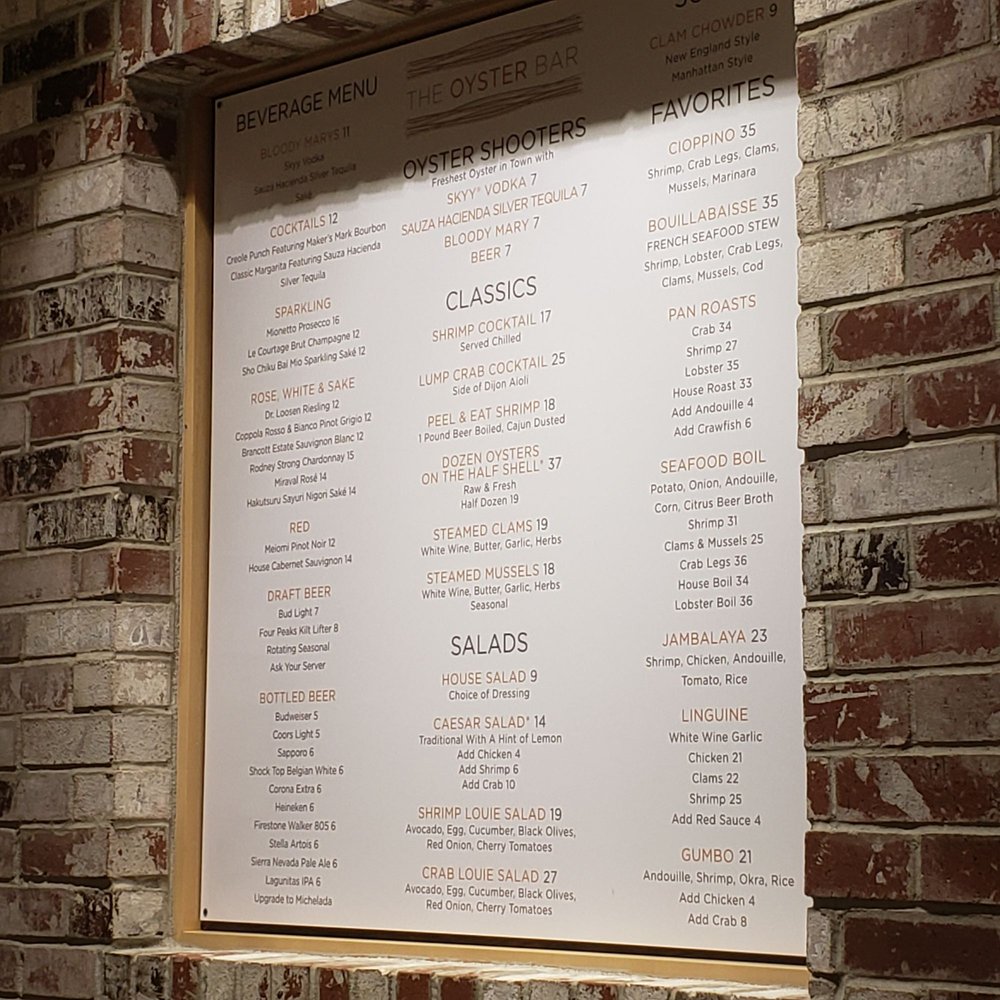 BEVERAGE MENU
BLOODY MARYS 11
Skyy Vodka
Sauza Hacienda Silver Tequila
Saké
COCKTAILS 12
Creole Punch Featuring Maker's Mark Bourbon
Classic Margarita Featuring Sauza Hacienda
Silver Tequila
SPARKLING
Mionetto Prosecco 16
Le Courtage Brut Champagne 12
Sho Chiku Bai Mio Sparkling Saké 12
ROSE, WHITE & SAKE
Dr. Loosen Riesling 12
Coppola Rosso & Bianco Pinot Grigio 12
Brancott Estate Sauvignon Blanc 12
Rodney Strong Chardonnay 15
Miraval Rosé 14
Hakutsuru Sayuri Nigori Saké 14
RED
Meiomi Pinot Noir 12
House Cabernet Sauvignon 14
DRAFT BEER
Bud Light 7
Four Peaks Kilt Lifter 8
Rotating Seasonal
Ask Your Server
BOTTLED BEER
Budweiser 5
Coors Light 5
Sapporo 6
Shock Top Belgian White 6
Corona Extra 6
Heineken 6
Firestone Walker 805 6
Stella Artois 6
Sierra Nevada Pale Ale 6
Lagunitas IPA 6
Upgrade to Michelada
THE OYSTER BAR
OYSTER SHOOTERS
Freshest Oyster in Town with
SKYY® VODKA 7
SAUZA HACIENDA SILVER TEQUILA 7
BLOODY MARY 7
BEER 7
CLASSICS
SHRIMP COCKTAIL 17
Served Chilled
LUMP CRAB COCKTAIL 25
Side of Dijon Aioli
PEEL & EAT SHRIMP 18
1 Pound Beer Boiled, Cajun Dusted
DOZEN OYSTERS
ON THE HALF SHELL* 37
Raw & Fresh
Half Dozen 19
STEAMED CLAMS 19
White Wine, Butter, Garlic, Herbs
STEAMED MUSSELS 18
White Wine, Butter, Garlic, Herbs
Seasonal
SALADS
HOUSE SALAD 9
Choice of Dressing
CAESAR SALAD* 14
Traditional With A Hint of Lemon
Add Chicken 4
Add Shrimp 6
Add Crab 10
SHRIMP LOUIE SALAD 19
Avocado, Egg, Cucumber, Black Olives,
Red Onion, Cherry Tomatoes
CRAB LOUIE SALAD 27
Avocado, Egg, Cucumber, Black Olives,
Red Onion, Cherry Tomatoes
CLAM CHOWDER 9
New England Style
Manhattan Style
FAVORITES
CIOPPINO 35
Shrimp, Crab Legs, Clams,
Mussels, Marinara
BOUILLABAISSE 35
FRENCH SEAFOOD STEW
Shrimp, Lobster, Crab Legs,
Clams, Mussels, Cod
PAN ROASTS
Crab 34
Shrimp 27
Lobster 35
House Roast 33
Add Andouille 4
Add Crawfish 6
SEAFOOD BOIL
Potato, Onion, Andouille,
Corn, Citrus Beer Broth
Shrimp 31
Clams & Mussels 25
Crab Legs 36
House Boil 34
Lobster Boil 36
JAMBALAYA 23
Shrimp, Chicken, Andouille,
Tomato, Rice
LINGUINE
White Wine Garlic
Chicken 21
Clams 22
Shrimp 25
Add Red Sauce 4
GUMBO 21
Andouille, Shrimp, Okra, Rice
Add Chicken 4
Add Crab 8